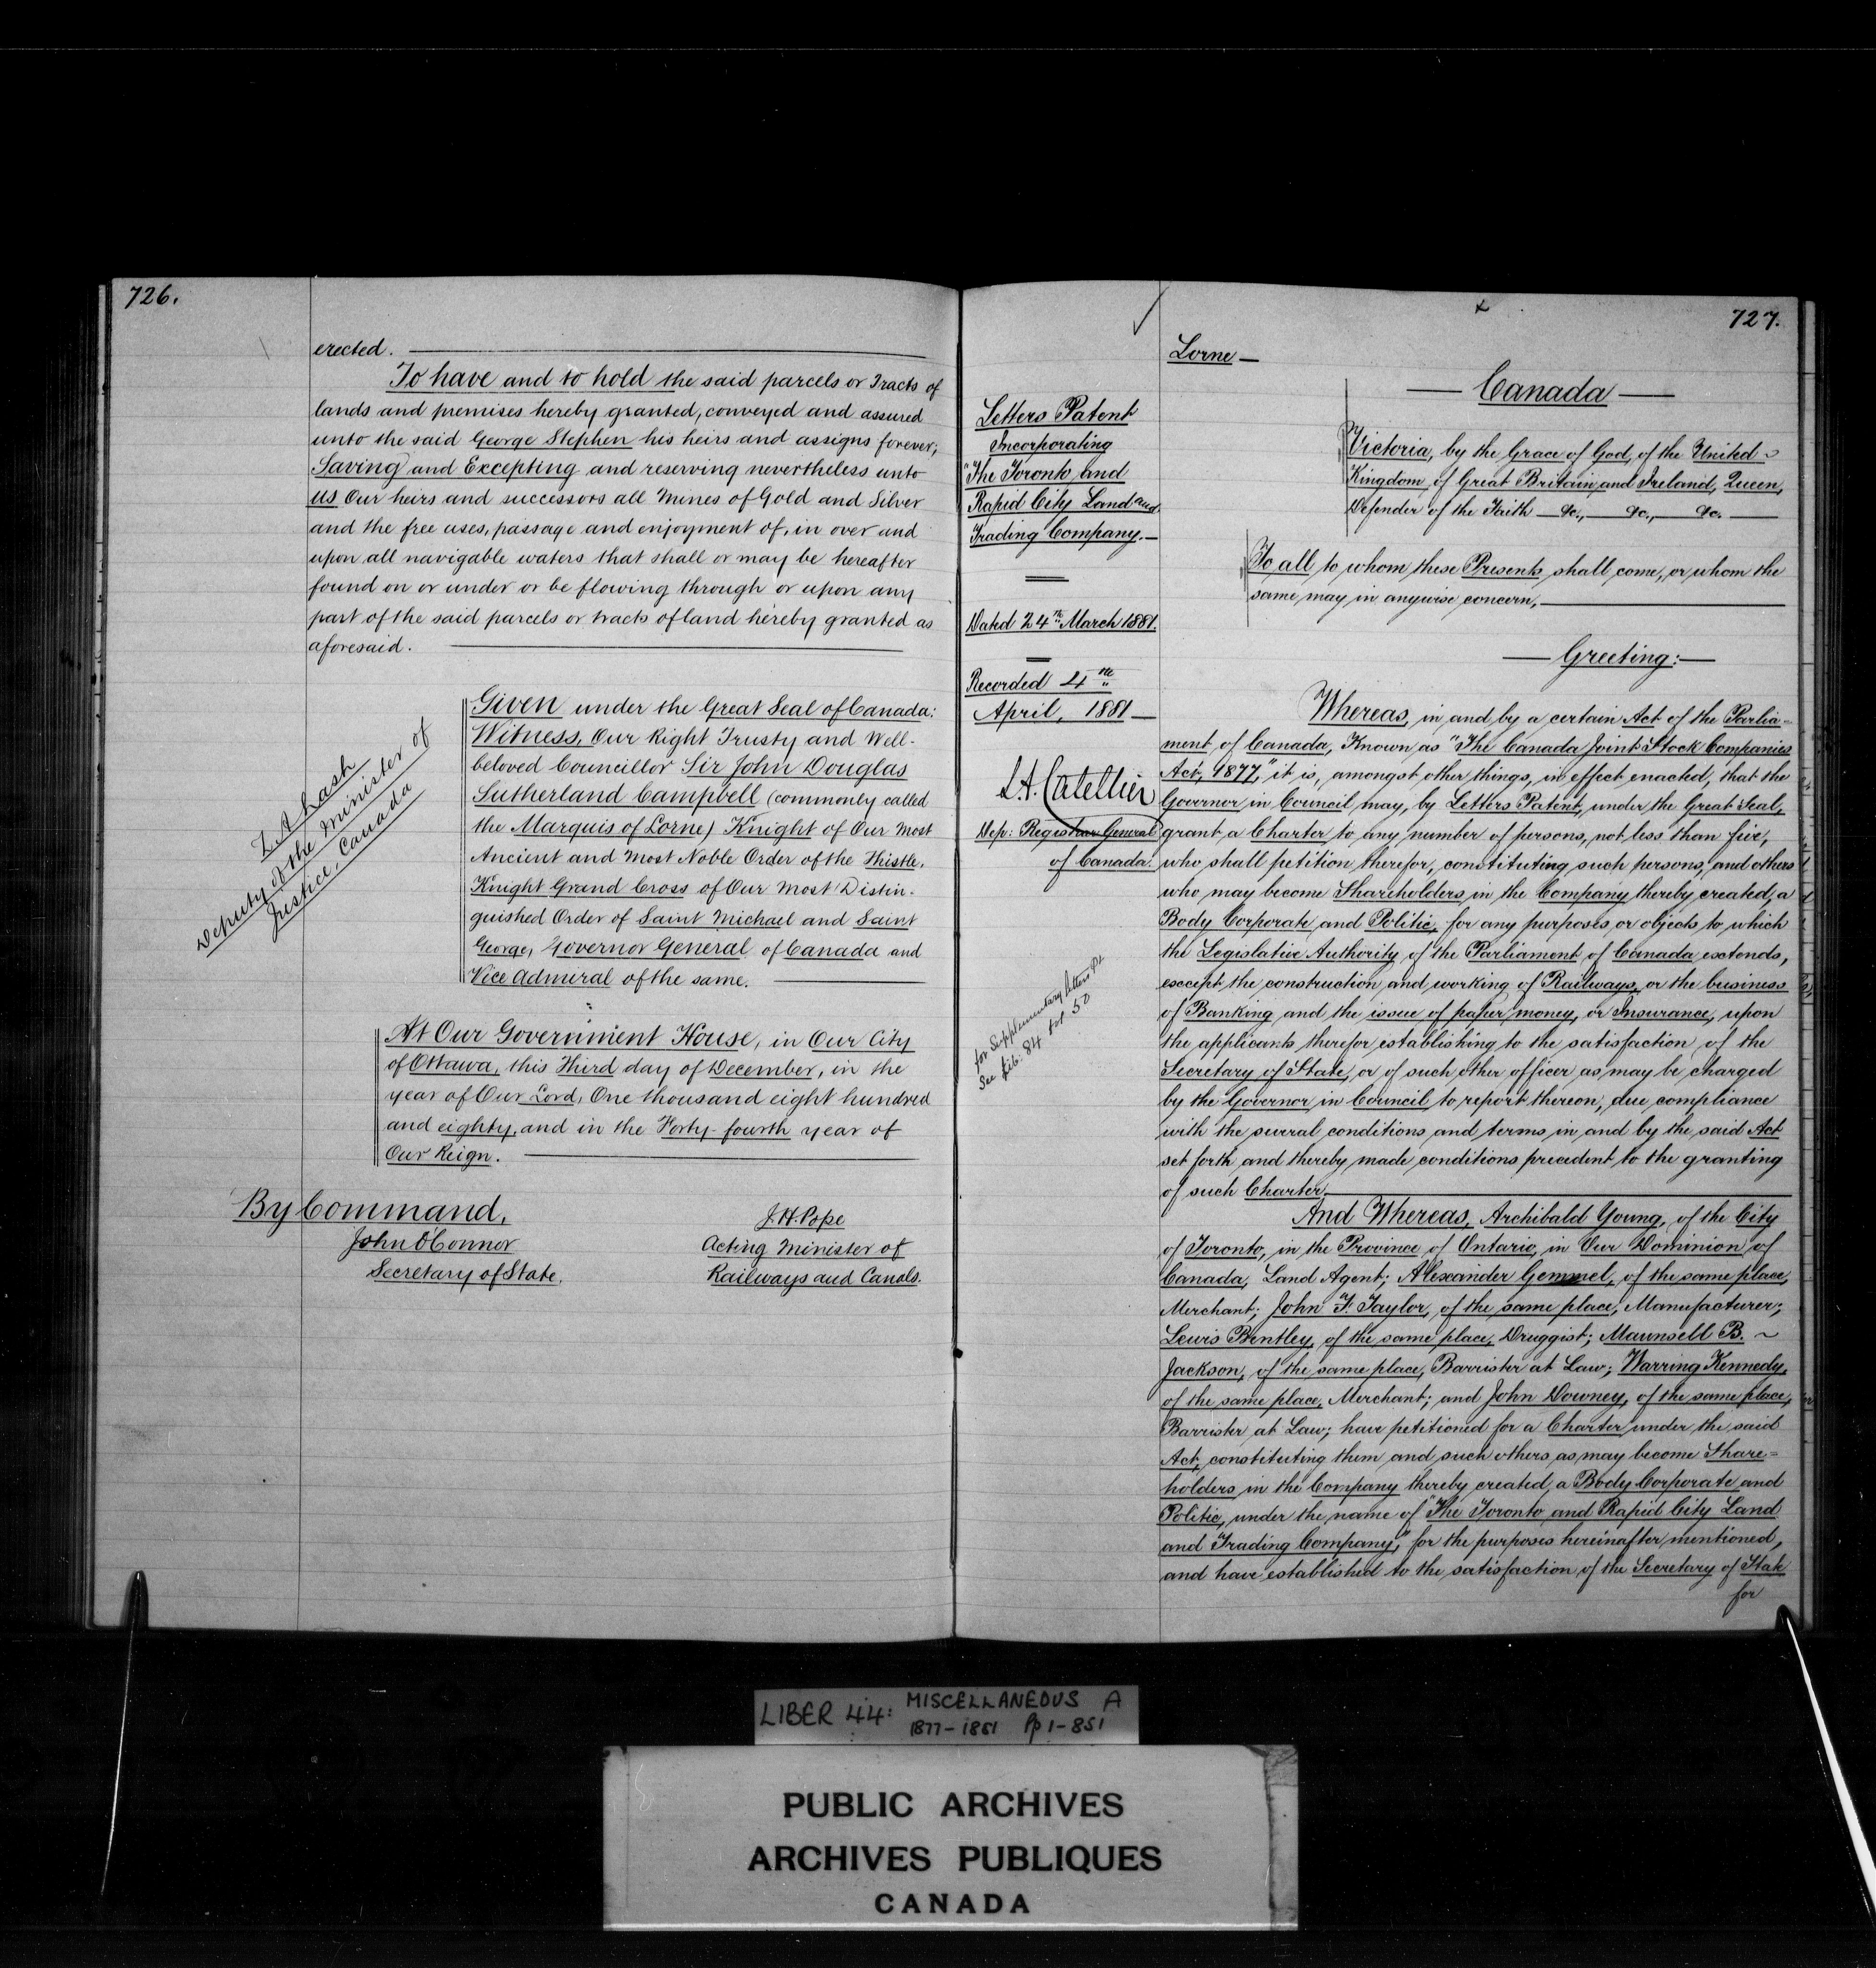 726.
erected.
To have and to hold the said parcels or Tracts of
lands and premises hereby granted, conveyed and assured
unto the said George Stephen his heirs and assigns forever;
Saving and Excepting and reserving nevertheless unto
us Our heirs and successors all Mines of Gold and Silver
and the free uses, passage and enjoyment of, in over and
upon all navigable waters that shall or may be hereafter
found on or under or be flowing through or upon any
part of the said parcels or tracts of land hereby granted as
aforesaid.
Z. A Lash
Deputy of the Minister of
Justice, Canada
Given under the Great Seal of Canada:
Witness, Our Right Trusty and Well-
beloved Councillor Sir John Douglas
Sutherland Campbell (commonly called
the Marquis of Lorne) Knight of Our Most
Ancient and Most Noble Order of the Thistle,
Knight Grand Cross of Our Most Distin-
guished Order of Saint Michael and Saint
George, Governor General of Canada and
Vice Admiral of the same.
At Our Government House, in Our City
of Ottawa, this Third day of December, in the
year of Our Lord, One thousand eight hundred
and eighty, and in the Forty-fourth year of
Our Reign.
By Command,
John O'Connor
Secretary of State.
J. H. Pope
Acting Minister of
Railways and Canals.
727.
Letters Patent
Incorporating
"The Toronto and
Rapid City Land and
Trading Company.—
Dated 24th March 1881.
Recorded 4th
April, 1881—
L. A. Catellier
Dep: Registrar General
of Canada.
for Supplementary letters Pt.
See Lib: 84 fol 50
Lorne—
— Canada —
Victoria, by the Grace of God, of the United
Kingdom of Great Britain and Ireland, Queen,
Defender of the Faith — &c., — &c., — &c. —
To all to whom these Presents shall come, or whom the
same may in anywise concern,
— Greeting:—
Whereas, in and by a certain Act of the Parlia=
ment of Canada, Known as "The Canada Joint Stock Companies
Act, 1877," it is, amongst other things, in effect enacted, that the
Governor in Council may, by Letters Patent, under the Great Seal,
grant a Charter to any number of persons, not less than five,
who shall petition therefor, constituting such persons, and others
who may become Shareholders in the Company thereby created, a
Body Corporate and Politic, for any purposes or objects to which
the Legislative Authority of the Parliament of Canada extends,
except the construction and working of Railways, or the business
of Banking and the issue of paper money, or Insurance, upon
the applicants therefor establishing to the satisfaction of the
Secretary of State, or of such other officer as may be charged
by the Governor in Council to report thereon, due compliance
with the several conditions and terms in and by the said Act
set forth and thereby made conditions precedent to the granting
of such Charter.
And Whereas, Archibald Young, of the City
of Toronto, in the Province of Ontario, in Our Dominion of
Canada, Land Agent; Alexander Gemmel, of the same place,
Merchant; John F. Taylor, of the same place, Manufacturer;
Lewis Bentley, of the same place, Druggist; Maunsell B. ~
Jackson, of the same place, Barrister at Law; Warring Kennedy,
of the same place, Merchant; and John Downey, of the same place,
Barrister at Law; have petitioned for a Charter under the said
Act, constituting them and such others as may become Share=
holders in the Company thereby created, a Body Corporate and
Politic, under the name of "The Toronto and Rapid City Land
and Trading Company," for the purposes hereinafter mentioned,
and have established to the satisfaction of the Secretary of State
for
LIBER 44: MISCELLANEOUS A
1877-1881 Pp 1-851
PUBLIC ARCHIVES
ARCHIVES PUBLIQUES
CANADA